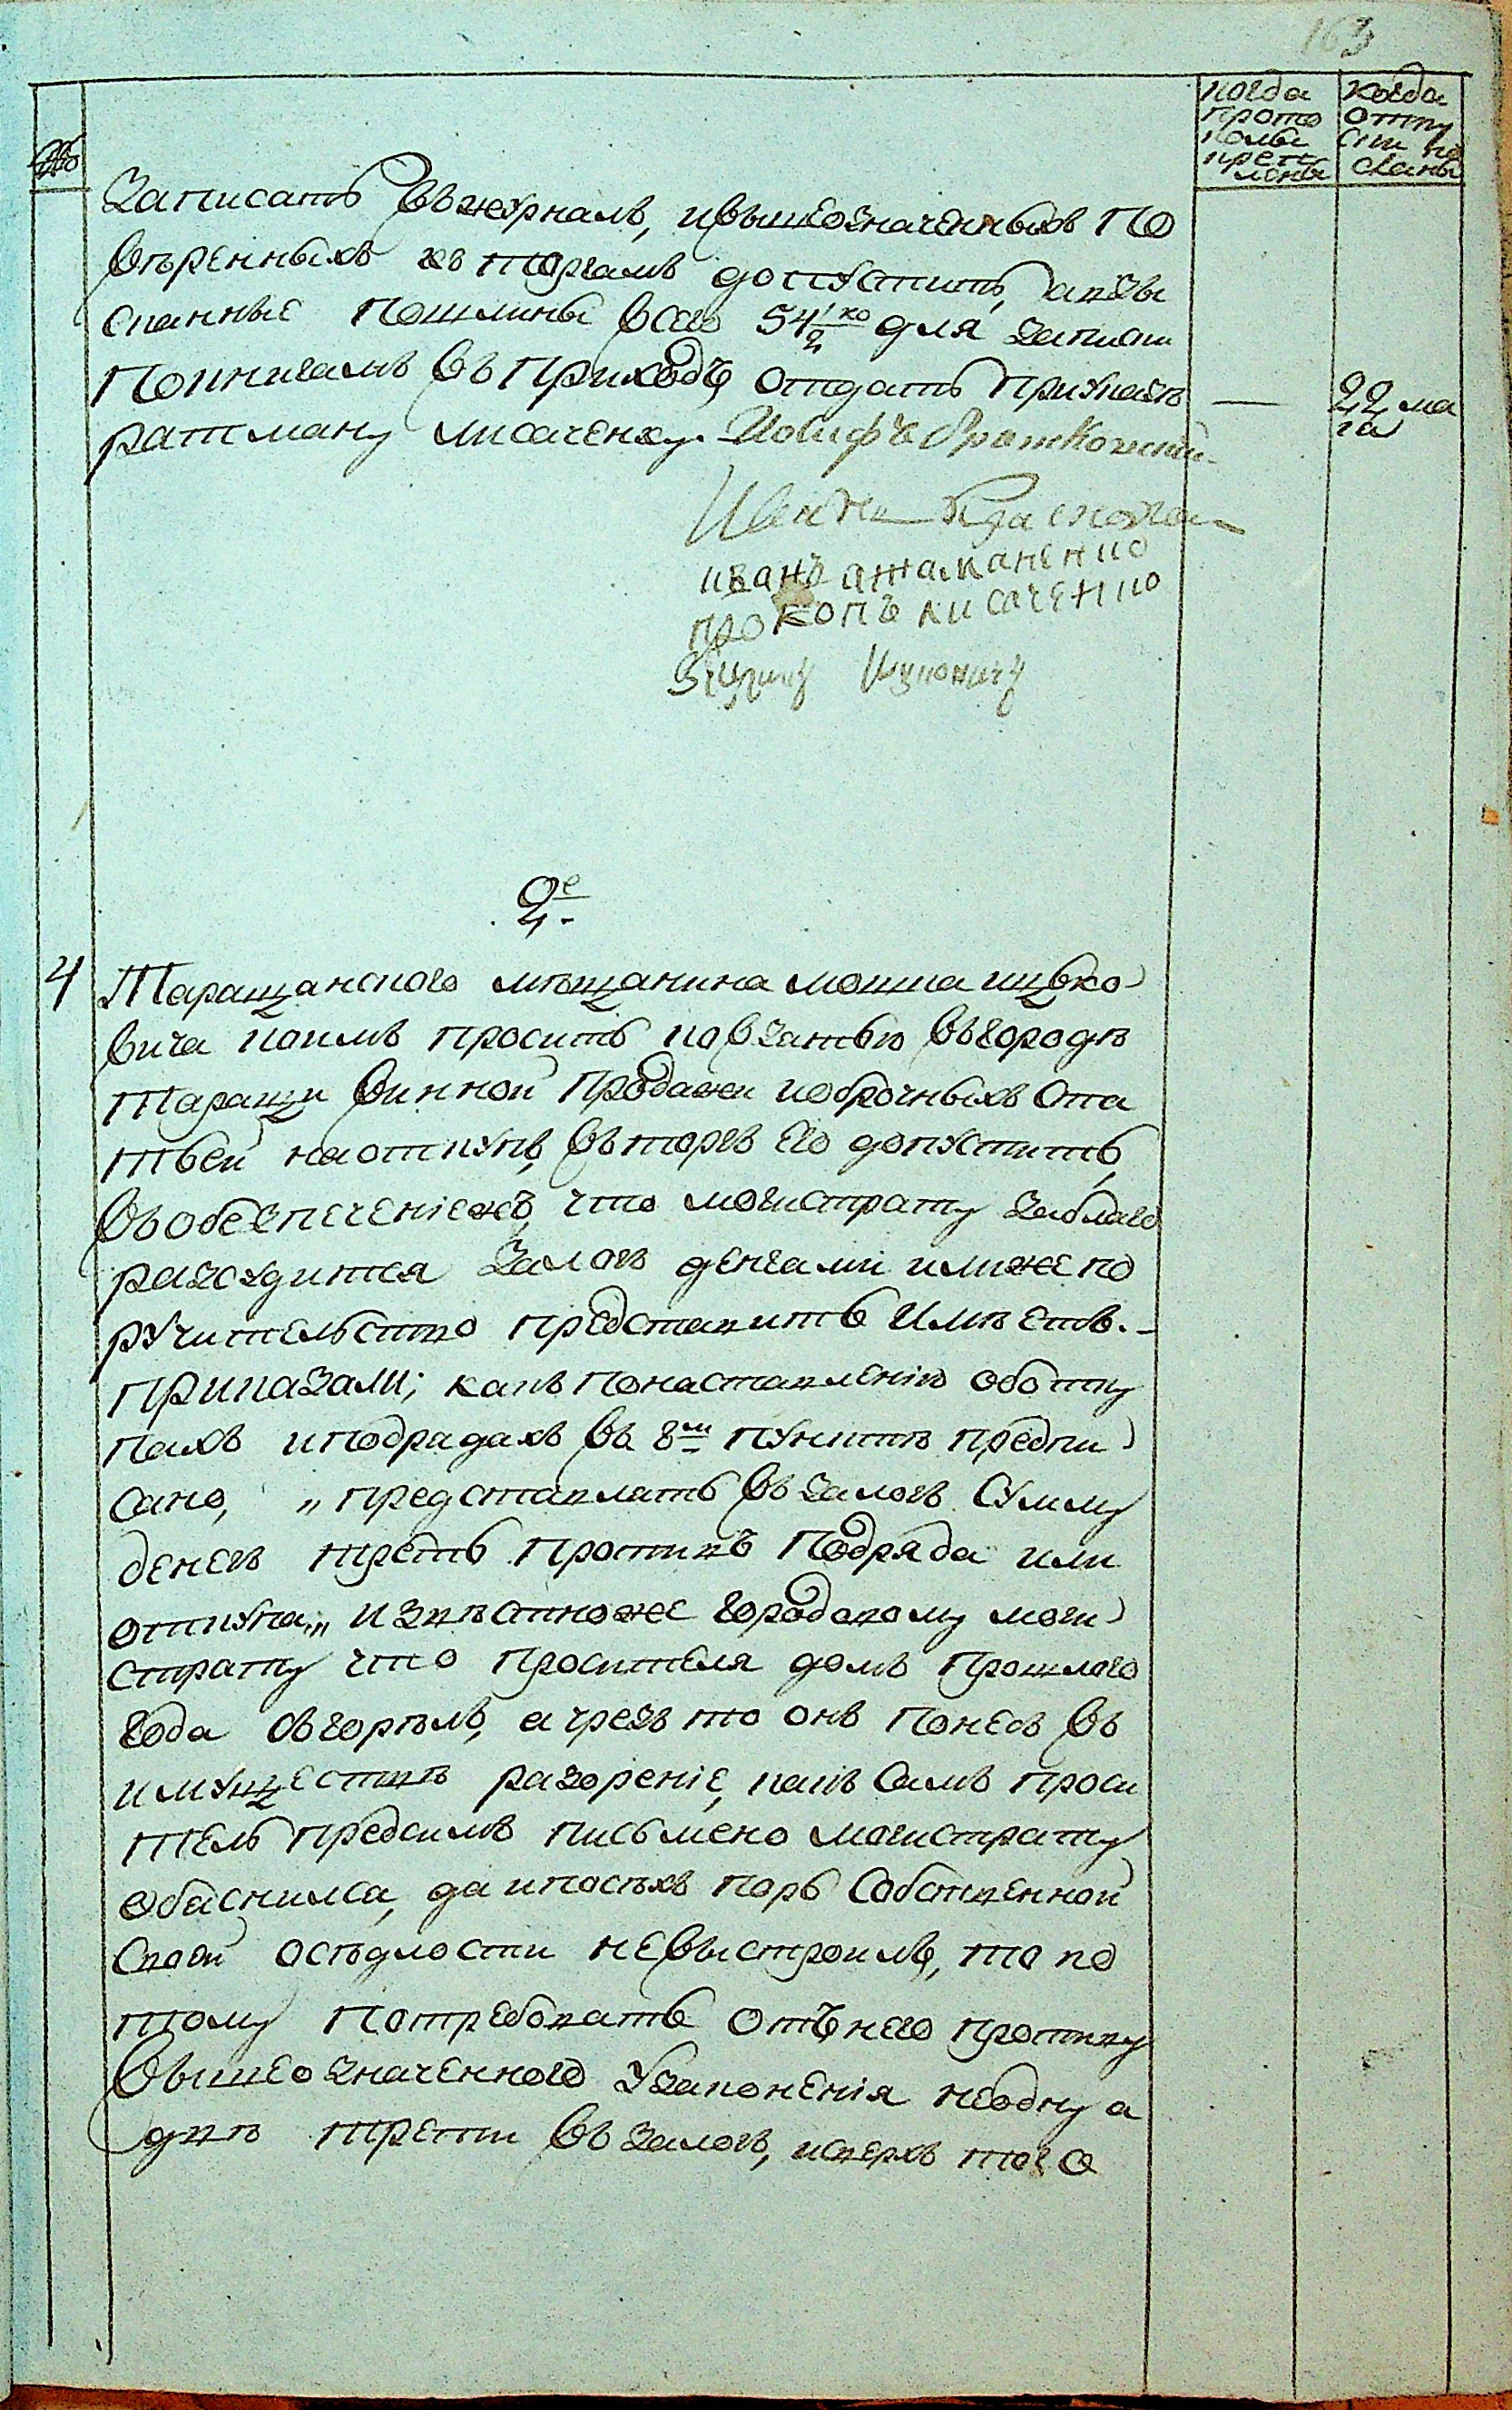 163
когда прото колы креп лены
когда отпу сти по сланы
№
Записать въ журналъ, и вышеозначенныхъ по
вѣренныхъ къ торгамъ допустить, а взы
сканные пошлины всего 54½ ко для записки
по книгамъ въ приходъ отдать при указѣ
ратману лисаченку. Иосифъ
22 мая
иванъ атаманенко
прокопъ лисаченко
2е
4
Таращанского мѣщанина мошка ицко
вича коимъ проситъ ко взятью въ городѣ
таращи винной продажи и оброчныхъ ста
тьей на откупъ, въ торгъ его допустить,
въ обезпеченіежъ, что магистрату заблаго
разсудится залогъ денгами или же по
ручительство представить имѣетъ.-
приказали; какъ по наставленію объ отку
пахъ и подрядахъ въ 8м пунктѣ предпи
сано, „представлять въ залогъ сумму
денегъ треть противъ подряда или
откупа„ извѣстно же городскому маги
страту что просителя домъ прошлого
года сгорѣлъ, а чрезъ то онъ понесъ въ
имуществѣ разореніе, какъ самъ проси
тель предсимъ письмено магистрату
объяснился, да и посѣхъ поръ собственной
своей осѣдлости не выстроилъ, то по
тому потребовать отъ него противу
вышеозначенного узаконенія не одну а
двѣ трети въ залогъ, исверхъ того